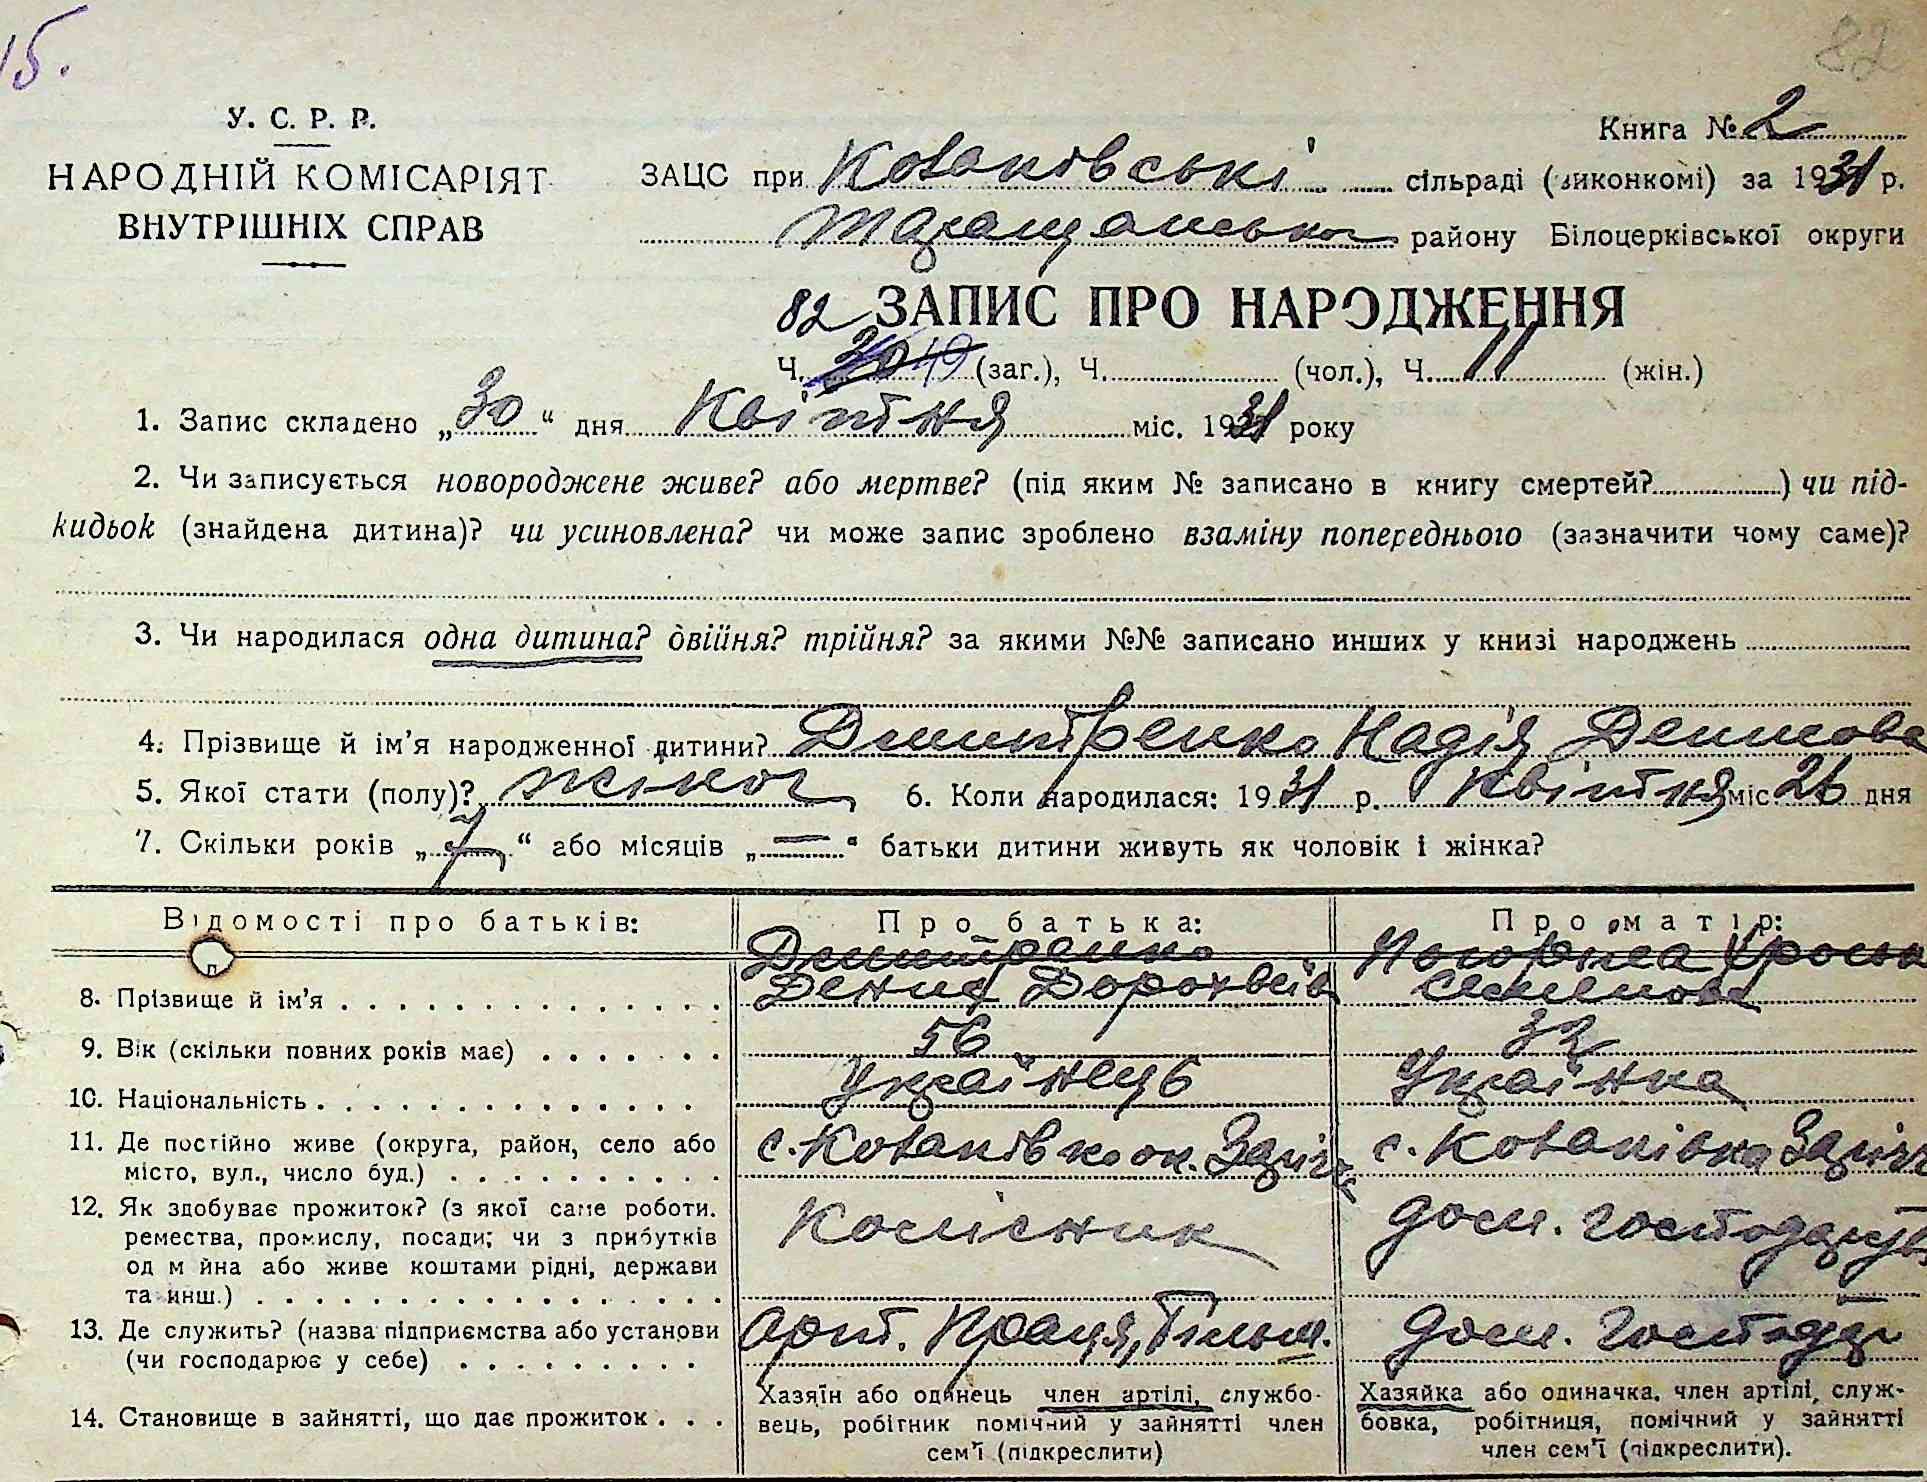 15.
82
У. С. Р. Р.
Книга № 2
НАРОДНІЙ КОМІСАРІЯТ
ВНУТРІШНІХ СПРАВ
ЗАЦС при Ковалівські сільраді (виконкомі) за 1931 р.
Таращанськог району Білоцерківської округи
82 ЗАПИС ПРО НАРОДЖЕННЯ
Ч. 30 19 (заг.), Ч. (чол.), Ч. 11 (жін.)
1. Запис складено „30“ дня Квітня міс. 1931 року
2. Чи записується новороджене живе? або мертве? (під яким № записано в книгу смертей? ) чи під-
кидьок (знайдена дитина)? чи усиновлена? чи може запис зроблено взаміну попереднього (зазначити чому саме)?
3. Чи народилася одна дитина? двійня? трійня? за якими №№ записано инших у книзі народжень
4. Прізвище й ім'я народженної дитини? Дмитренко Надія Денисова
5. Якої стати (полу)? жіног 6. Коли народилася: 1931 р. Квітня міс. 26 дня
7. Скільки років „7“ або місяців „—“ батьки дитини живуть як чоловік і жінка?
Відомості про батьків: Про батька: Про матір:
Дмитренко Погоріла
8. Прізвище й ім'я Денис Дорохвеїв Семенова
9. Вік (скільки повних років має) 56 32
10. Національність Українець Українка
11. Де постійно живе (округа, район, село або
місто, вул., число буд.) с. Ковалівка с. Ковалівка
12. Як здобуває прожиток? (з якої саме роботи.
ремества, промислу, посади; чи з прибутків
од м йна або живе коштами рідні, держави
та инш.) Колісник дом. господарув
13. Де служить? (назва підприємства або установи
(чи господарює у себе) Арт. Праця, Тільш. дом. господар
14. Становище в зайнятті, що дає прожиток
Хазяїн або одинець член артілі, службо-
вець, робітник помічний у зайнятті член
сем'ї (підкреслити)
Хазяйка або одиначка, член артілі, служ-
бовка, робітниця, помічний у зайнятті
член сем'ї (підкреслити).